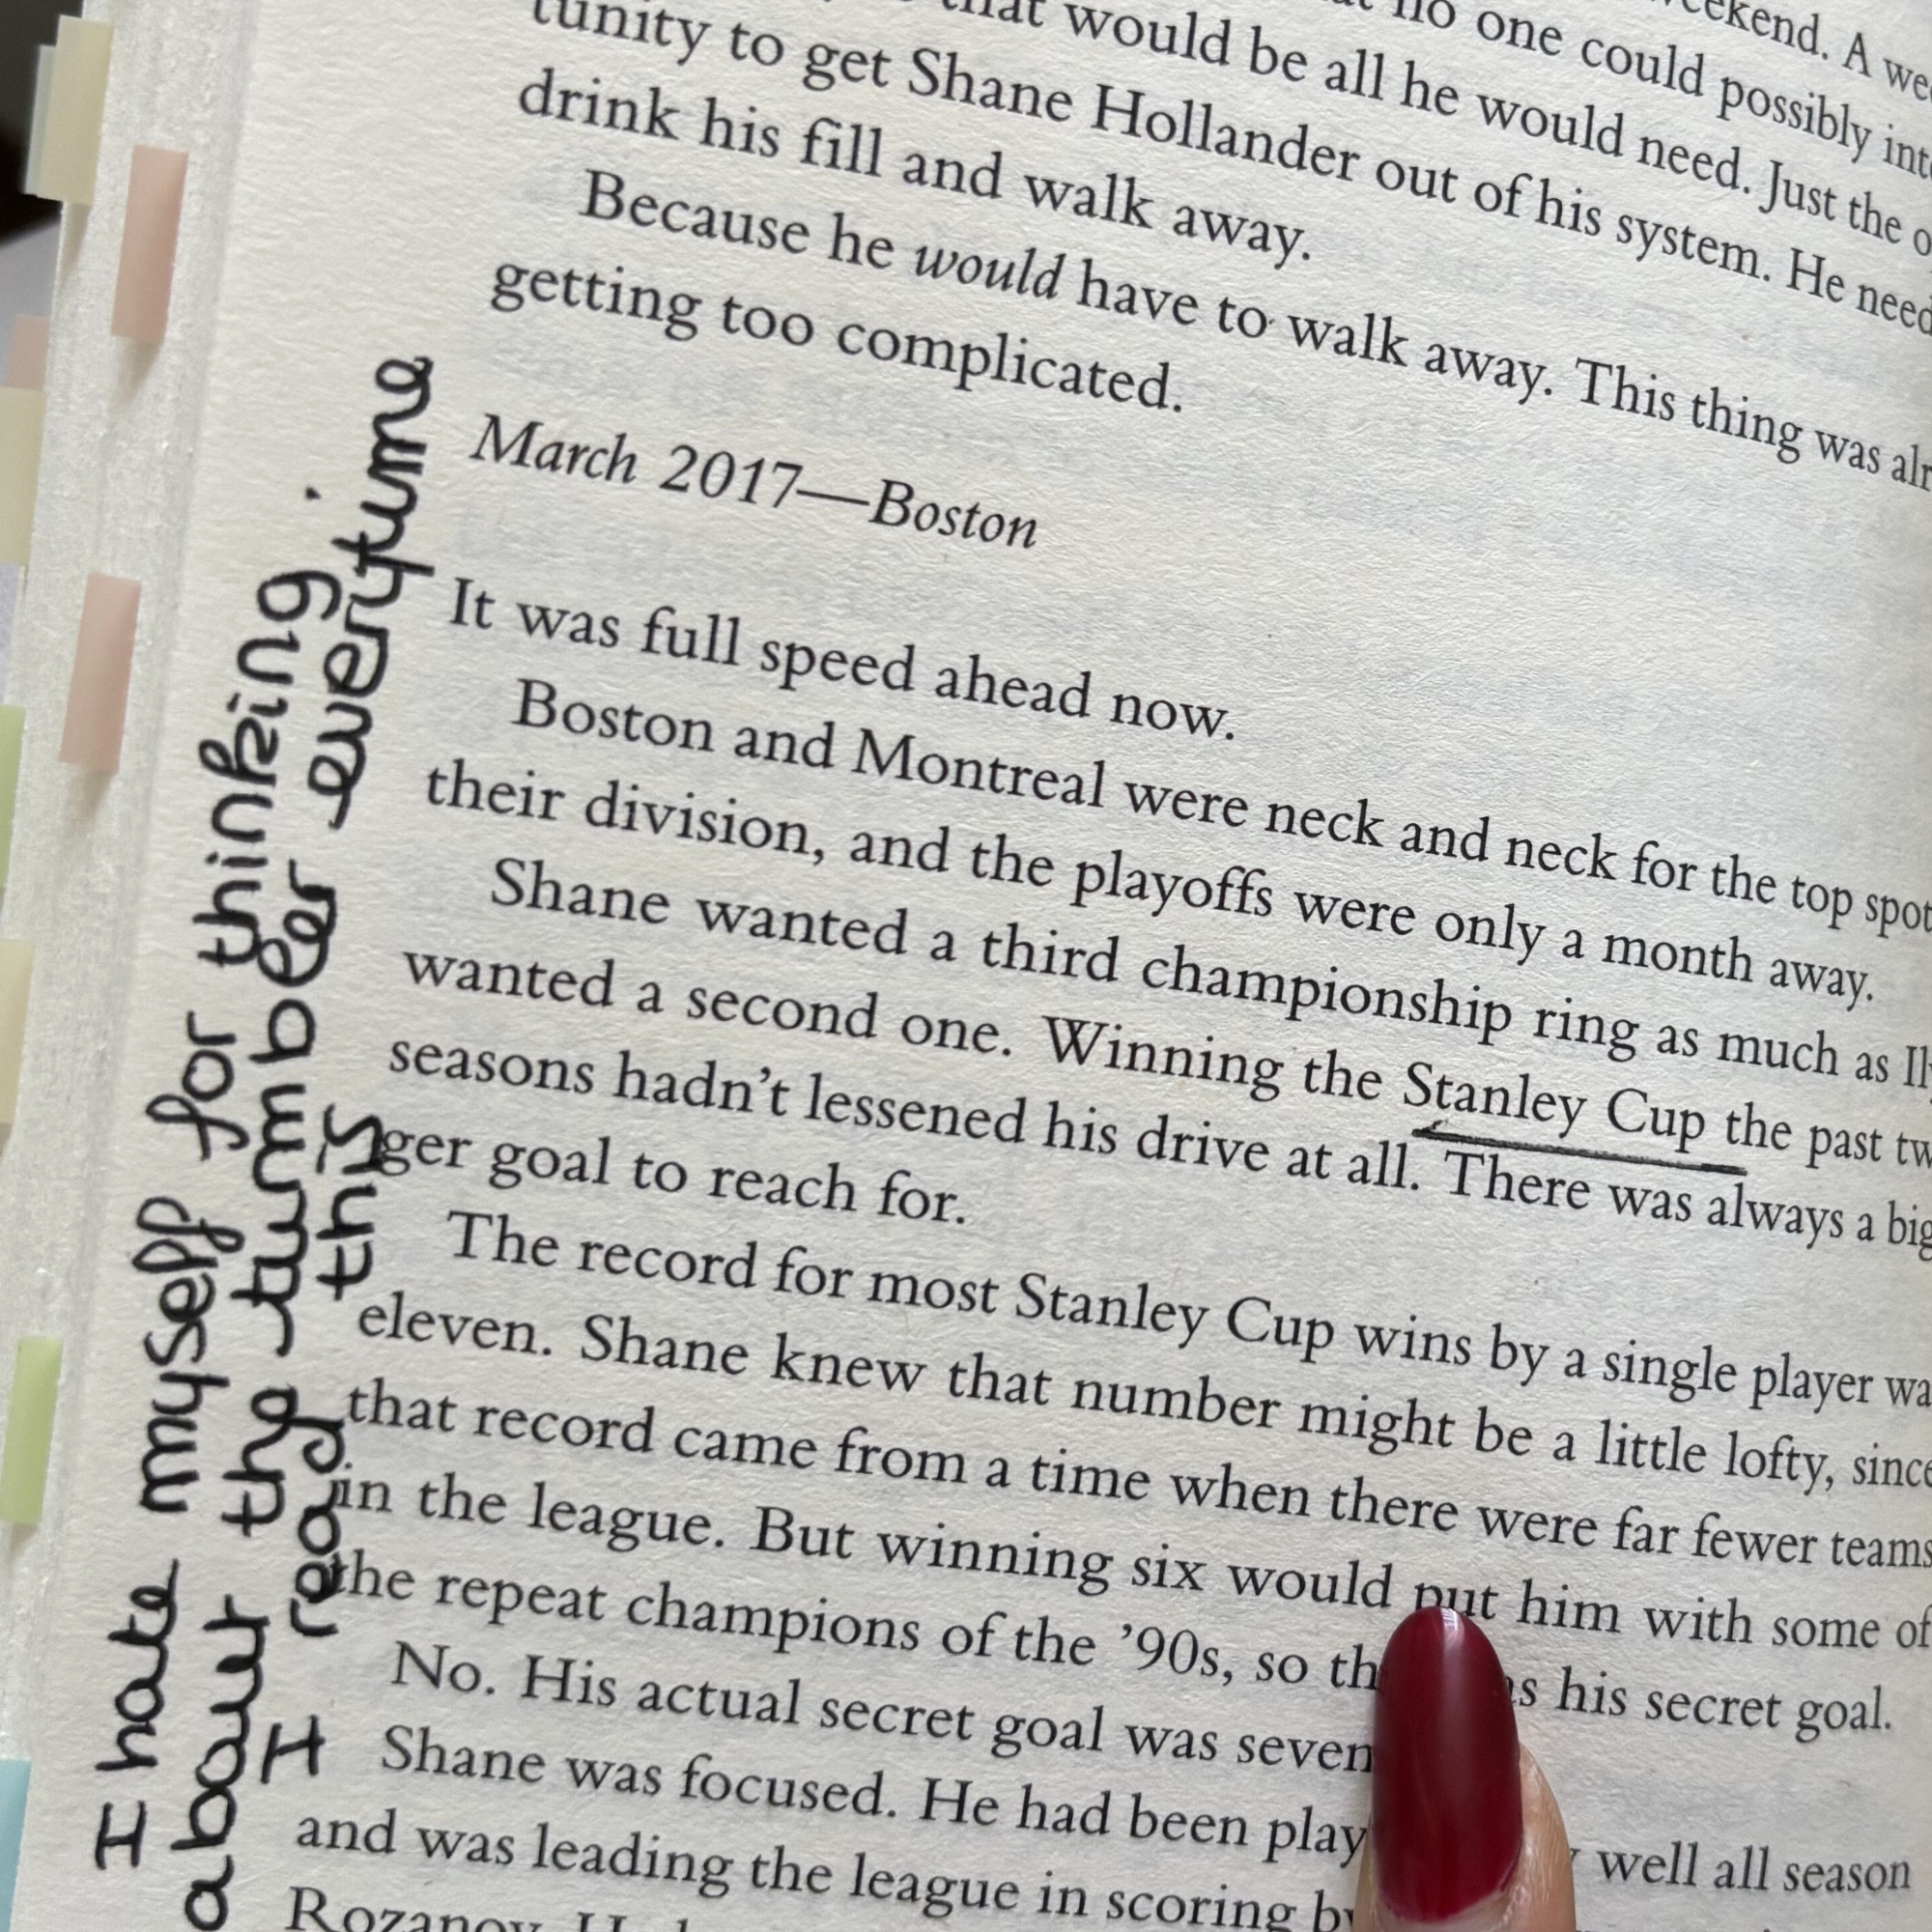 weekend. A
no one could possibly
that would be all he would need. Just the
tunity to get Shane Hollander out of his system. He
drink his fill and walk away.
Because he would have to walk away. This thing was
getting too complicated.
March 2017—Boston
It was full speed ahead now.
Boston and Montreal were neck and neck for the top spot
their division, and the playoffs were only a month away.
Shane wanted a third championship ring as much as
wanted a second one. Winning the Stanley Cup the past
seasons hadn't lessened his drive at all. There was always a big
ger goal to reach for.
The record for most Stanley Cup wins by a single player
eleven. Shane knew that number might be a little lofty, since
that record came from a time when there were far fewer teams
in the league. But winning six would put him with some of
the repeat champions of the '90s, so his secret goal.
No. His actual secret goal was seven
Shane was focused. He had been play well all season
and was leading the league in scoring
Rozanov.
I hate myself for thinking
about the tumbler everytime
I read this